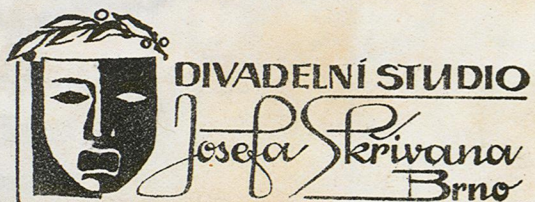 DIVADELNÍ STUDIO
Josefa Skřivana
Brno